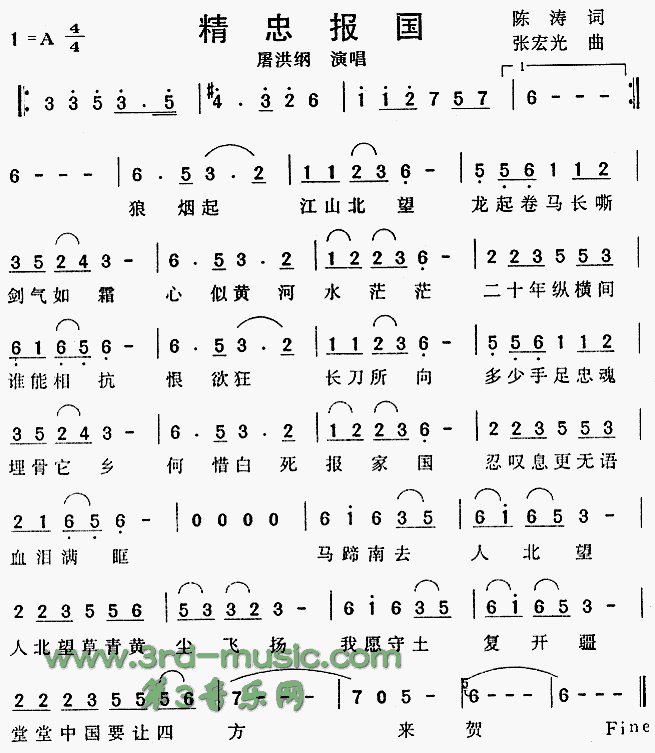 精忠报国
1=A 4/4
陈涛 词
张宏光 曲
屠洪纲 演唱
3 3 5 3 . 5 | #4 . 3 2 6 | 1 1 2 7 5 7 | 1 6 - - -
6 - - - | 6 . 5 3 . 2 | 1 1 2 3 6 - | 5 5 6 1 1 2
狼烟起 江山北望 龙起卷马长嘶
3 5 2 4 3 - | 6 . 5 3 . 2 | 1 2 2 3 6 - | 2 2 3 5 5 3
剑气如霜 心似黄河水茫茫 二十年纵横间
6 1 6 5 6 - | 6 . 5 3 . 2 | 1 1 2 3 6 - | 5 5 6 1 1 2
谁能相抗 恨欲狂 长刀所向 多少手足忠魂
3 5 2 4 3 - | 6 . 5 3 . 2 | 1 2 2 3 6 - | 2 2 3 5 5 3
埋骨它乡 何惜白死报家国 忍叹息更无语
2 1 6 5 6 - | 0 0 0 0 | 6 i 6 3 5 | 6 i 6 3 -
血泪满眶 马蹄南去 人北望
2 2 3 5 5 6 | 5 3 3 2 3 - | 6 i 6 3 5 | 6 i 6 3 -
人北望草青黄尘飞扬 我愿守土复开疆
www.3rd-music.com
第3音乐网
2 2 2 3 5 5 5 6 | 7 - - - | 7 0 5 | 5 6 - - | 6 - - -
堂堂中国要让四方 来贺 Fine